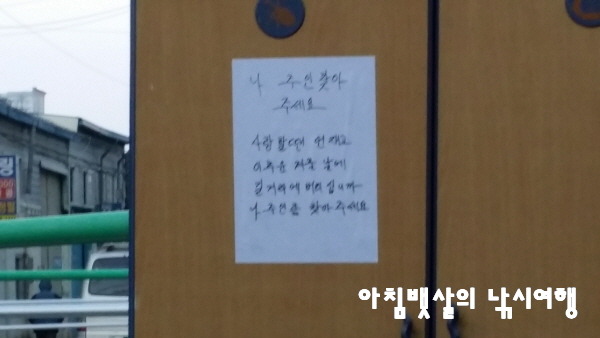 나 주인 찾아
주세요
사람 할땐 언제고
이 추운 겨울 날에
길거리에 버리십니까
나 주인을 찾아 주세요
아침햇살의 낚시여행